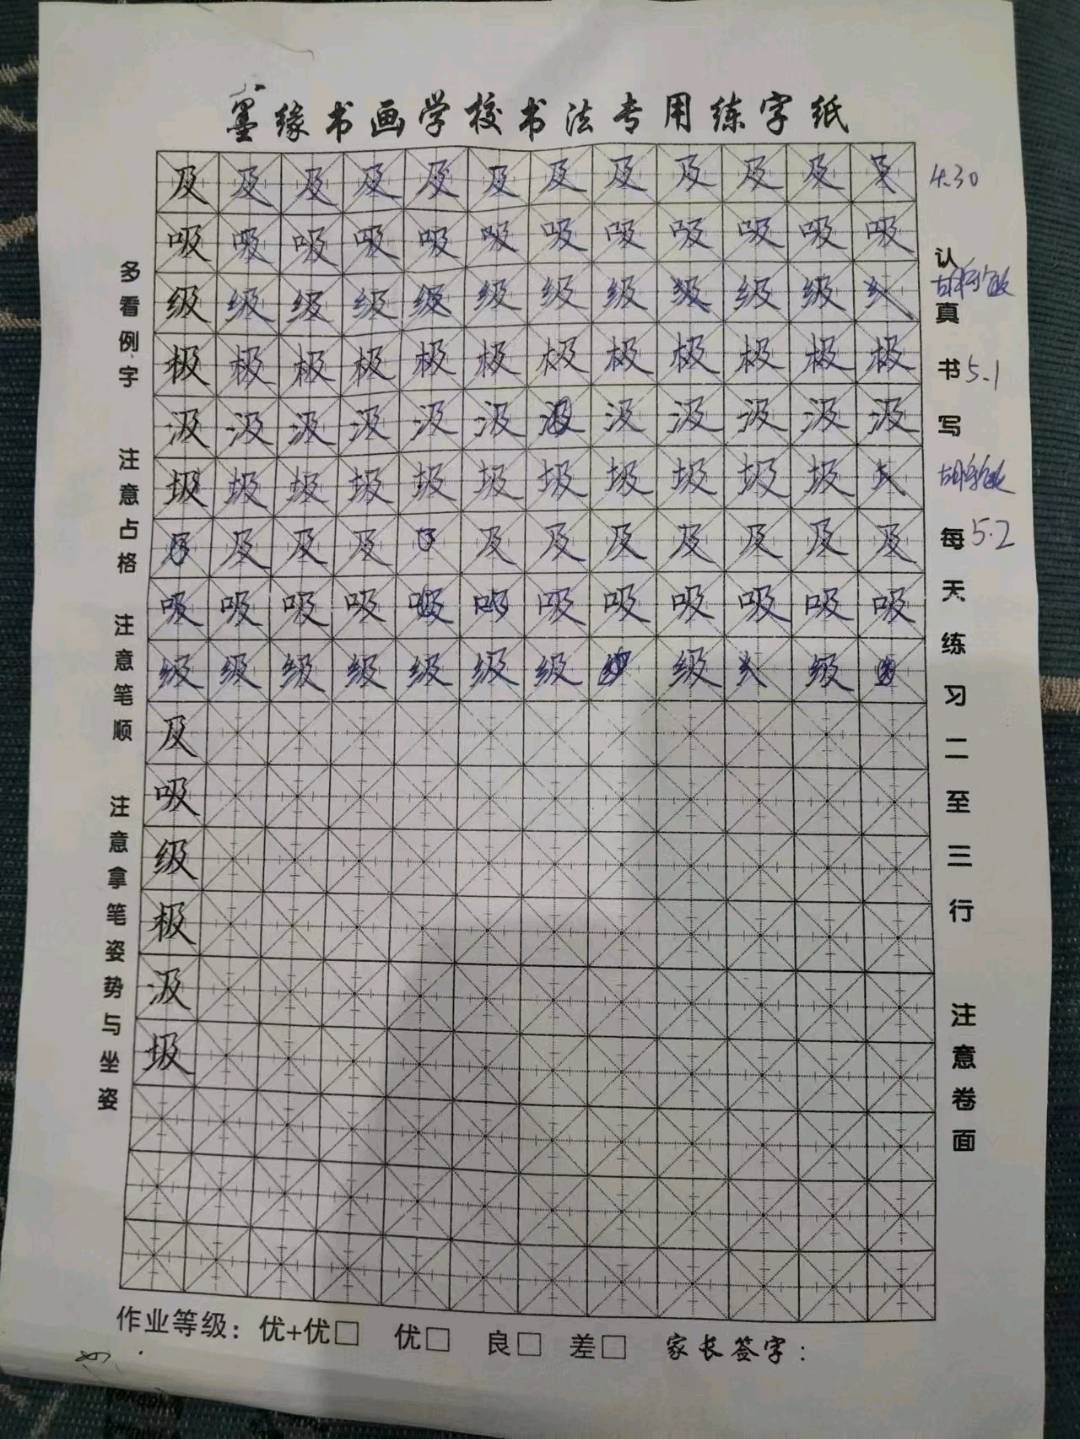 墨缘书画学校书法专用练字纸
及及及及及及及及及及及及 4.30
吸吸吸吸吸吸吸吸吸吸吸吸
级级级级级级级级级级级
极极极极极极极极极极极极 5.1
汲汲汲汲汲汲汲汲汲汲汲
圾圾圾圾圾圾圾圾圾圾圾
及及及及及及及及及及 5.2
吸吸吸吸吸吸吸吸吸吸
级级级级级级级级级
及
吸
级
极
汲
圾
多看例字 注意占格 注意笔顺 注意拿笔姿势与坐姿
认真书写 每天练习二至三行 注意卷面
作业等级：优+优□ 优□ 良□ 差□ 家长签字：